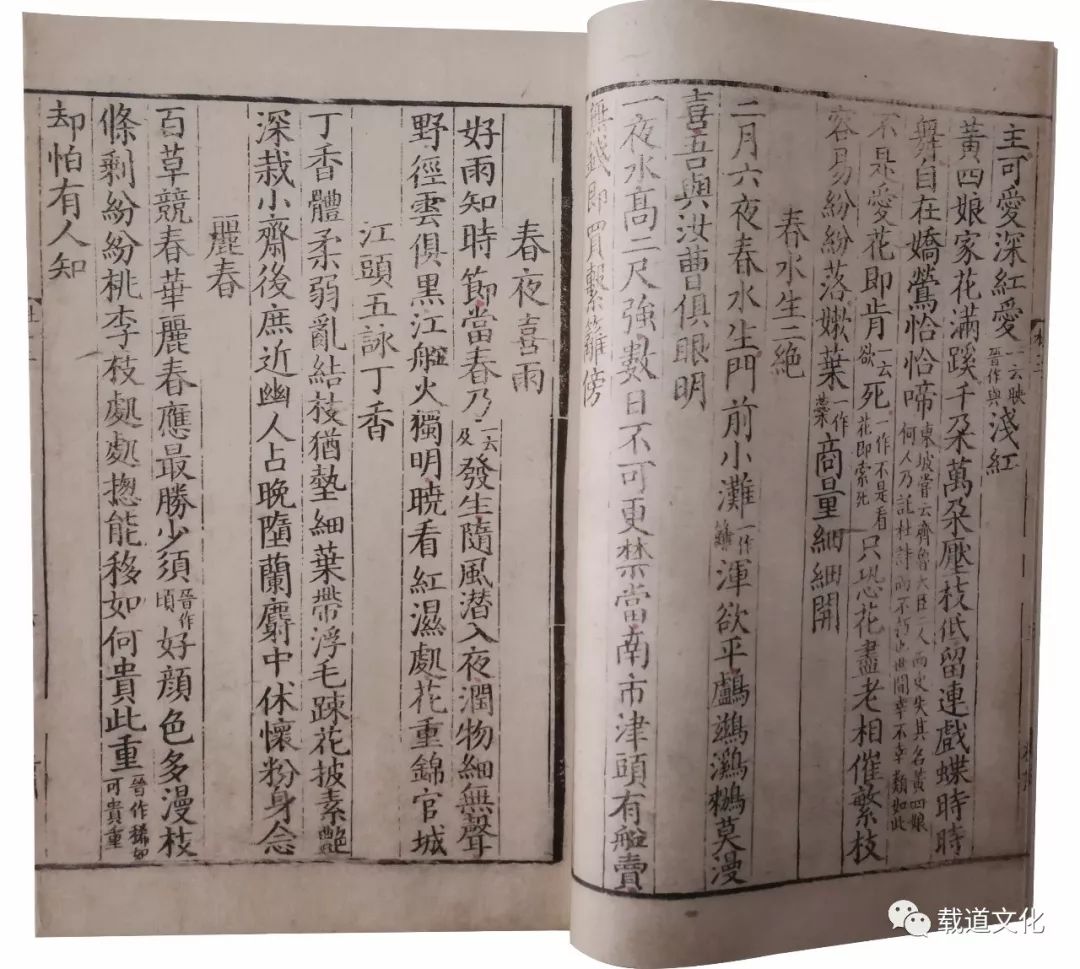 主可愛深紅愛一云映晉作與淺紅
黃四娘家花滿蹊千朶萬朶壓枝低留連戲蝶時時
舞自在嬌鶯恰恰啼東坡嘗云齊魯大臣二人而史失其名黃四娘何人乃託杜詩而不朽世間幸不幸類如此
不是愛花即肯一云欲死一作不是看花即索死只恐花盡老相催繁枝
容易紛紛落嫩葉一作蘂商量細細開
春水生二絶
二月六夜春水生門前小灘一作渾欲平鸕鷀鸂鶒莫漫
喜吾與汝曹俱眼明
一夜水髙二尺強數日不可更禁當南市津頭有舩賣
無錢即買繫籬傍
春夜喜雨
好雨知時節當春乃一云及發生隨風潜入夜潤物細無聲
野徑雲俱黒江舩火獨明曉看紅濕處花重錦官城
江頭五詠丁香
丁香體柔弱亂結枝猶墊細葉帶浮毛踈花披素艶
深栽小齋後庶近幽人占晚墮蘭麝中休懷粉身念
麗春
百草競春華麗春應最勝少須晉作頃好顔色多漫枝
條剩紛紛桃李枝處處揔能移如何貴此重晉作稀如可貴重
却怕有人知
载道文化